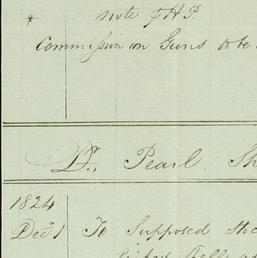 * note of H.P.
Commission on Guns to be
Dr., Pearl. Sh
1824
Decr 1 To Supposed Stoc